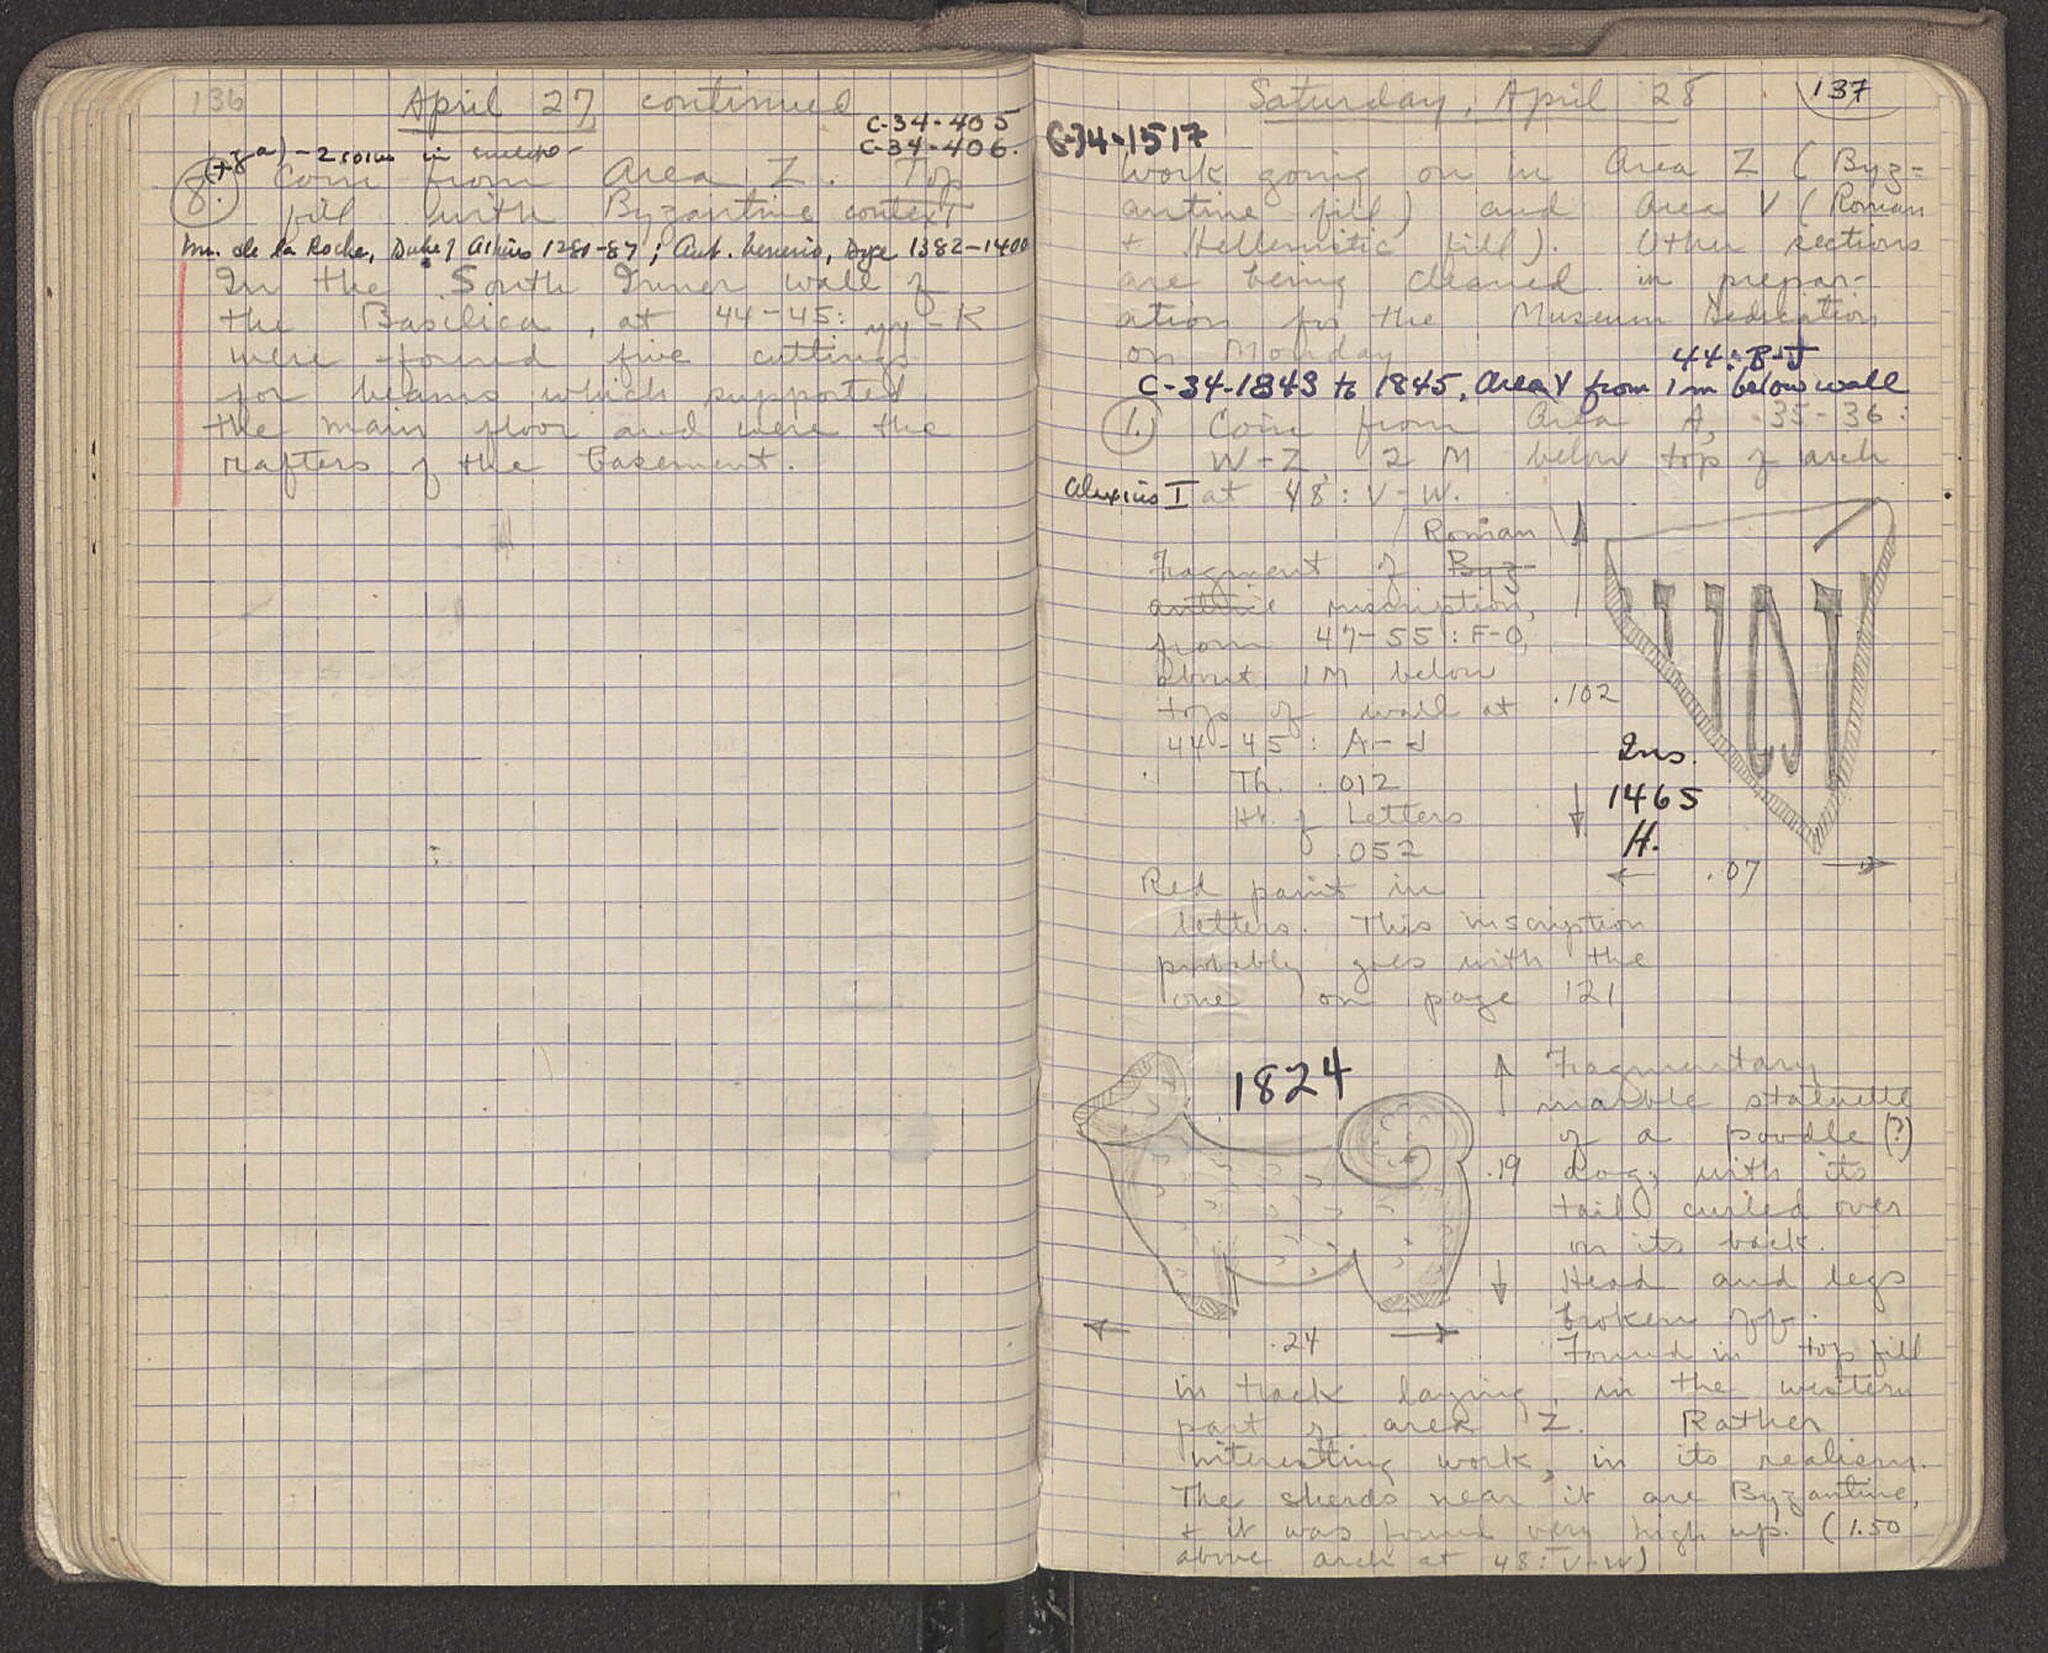 136
April 27 continued
C-34-405
C-34-406.
(+8a) - 2 coins in
8. Coin from Area Z. Top
fill with Byzantine context
de la Roche, Duke of Athens 1280-87; Ant. Venerio, Doge 1382-1400
In the South Inner wall of
the Basilica, at 44-45: yy-K
were found five cuttings
for beams which supported
the main floor and were the
rafters of the basement.
Saturday, April 28
137
C-34-1517
Work going on in Area Z (Byz-
antine fill) and Area V (Roman
+ Hellenistic fill). Other sections
are being cleaned in prepar-
ation for the Museum Dedication
on Monday
44: B-J
C-34-1843 to 1845, Area V from 1m below wall
1. Coin from Area A, 35-36:
W-Z, 2 M below top of arch
Alexius I at 48: V-W.
Roman
Fragment of Byz-
antine inscription,
from 47-55: F-O,
about 1 M below
top of wall at
44-45: A-J
Th. .012
Ht. of Letters
.052
.102
Ins.
1465
H.
.07
Red paint in
letters. This inscription
probably goes with the
one on page 121
1824
.19
.24
Fragmentary
marble statuette
of a poodle (?)
dog, with its
tail curled over
on its back.
Head and legs
broken off.
Found in top fill
in track laying, in the western
part of area Z. Rather
interesting work, in its realism.
The sherds near it are Byzantine,
+ it was found very high up. (1.50
above arch at 48: V-W)